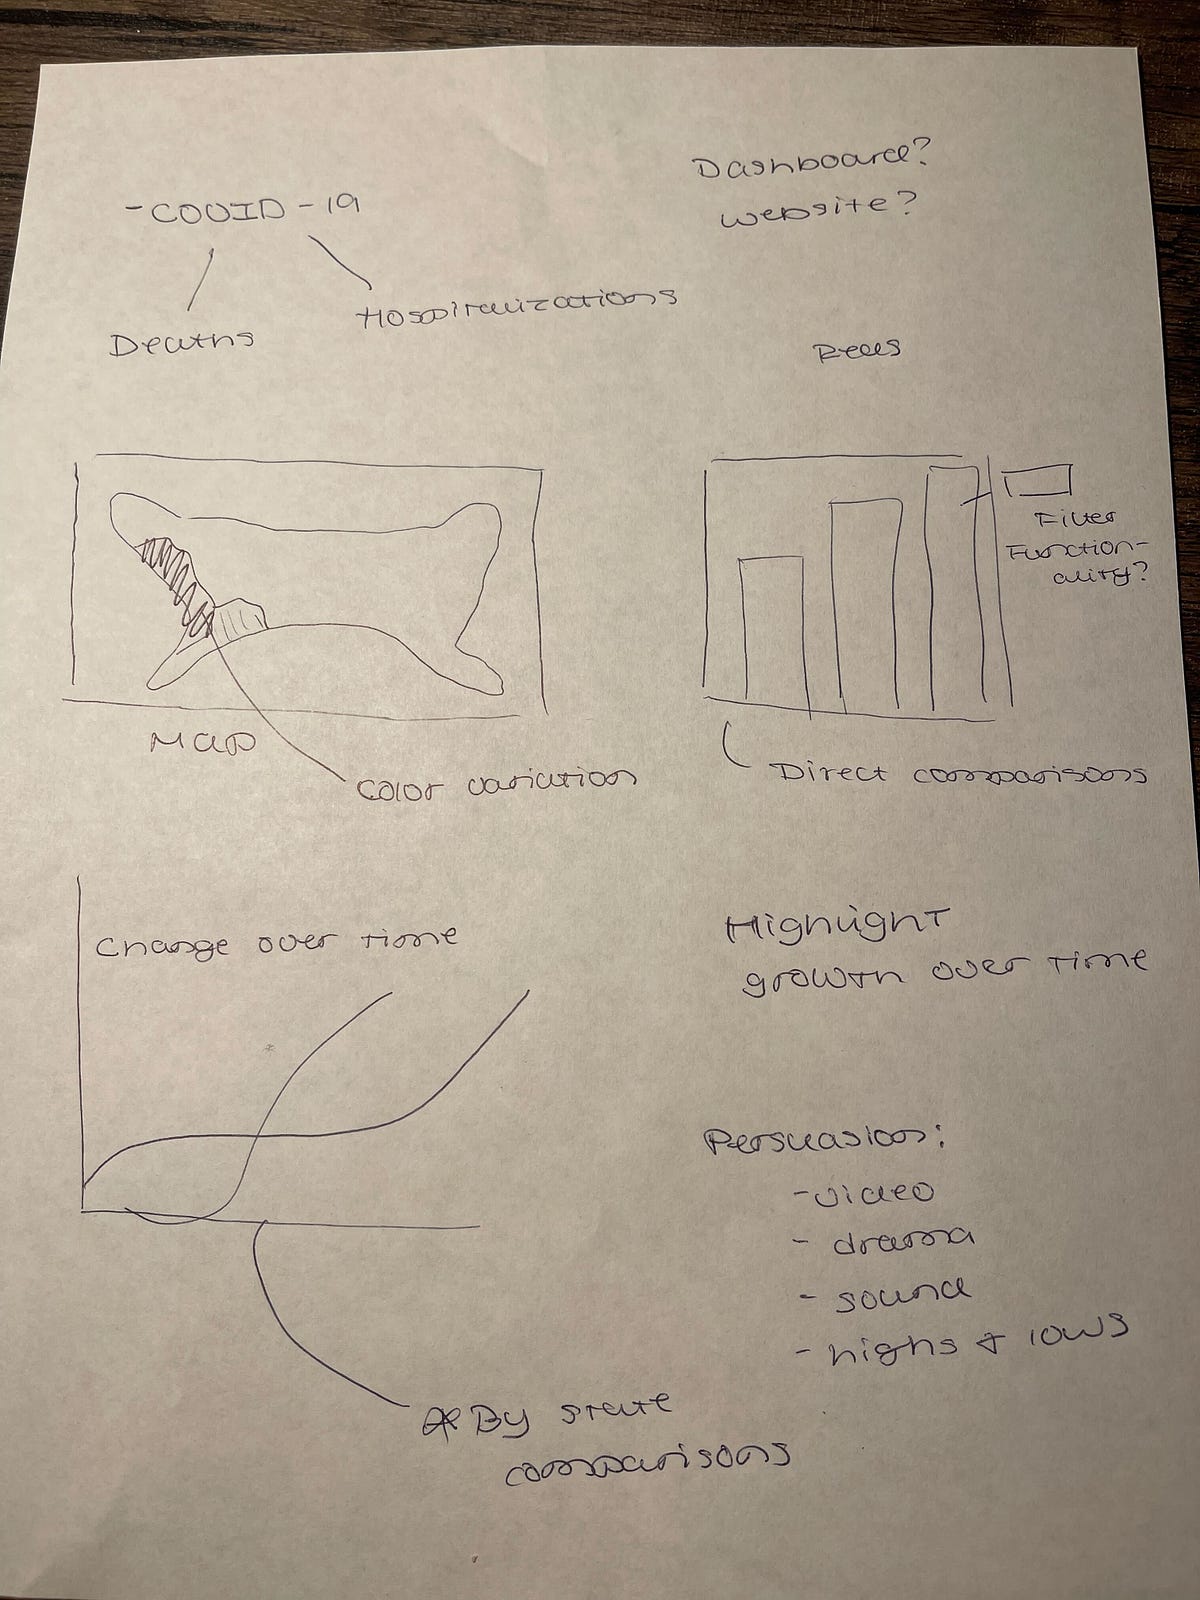 -COVID-19
Deaths
Hospitalizations
Dashboard?
website?
Map
Color variation
Filter
Function-
ality?
Direct comparisons
Change over time
Highlight
growth over time
Persuasion:
-video
- drama
- sound
- highs + lows
By state
comparisons